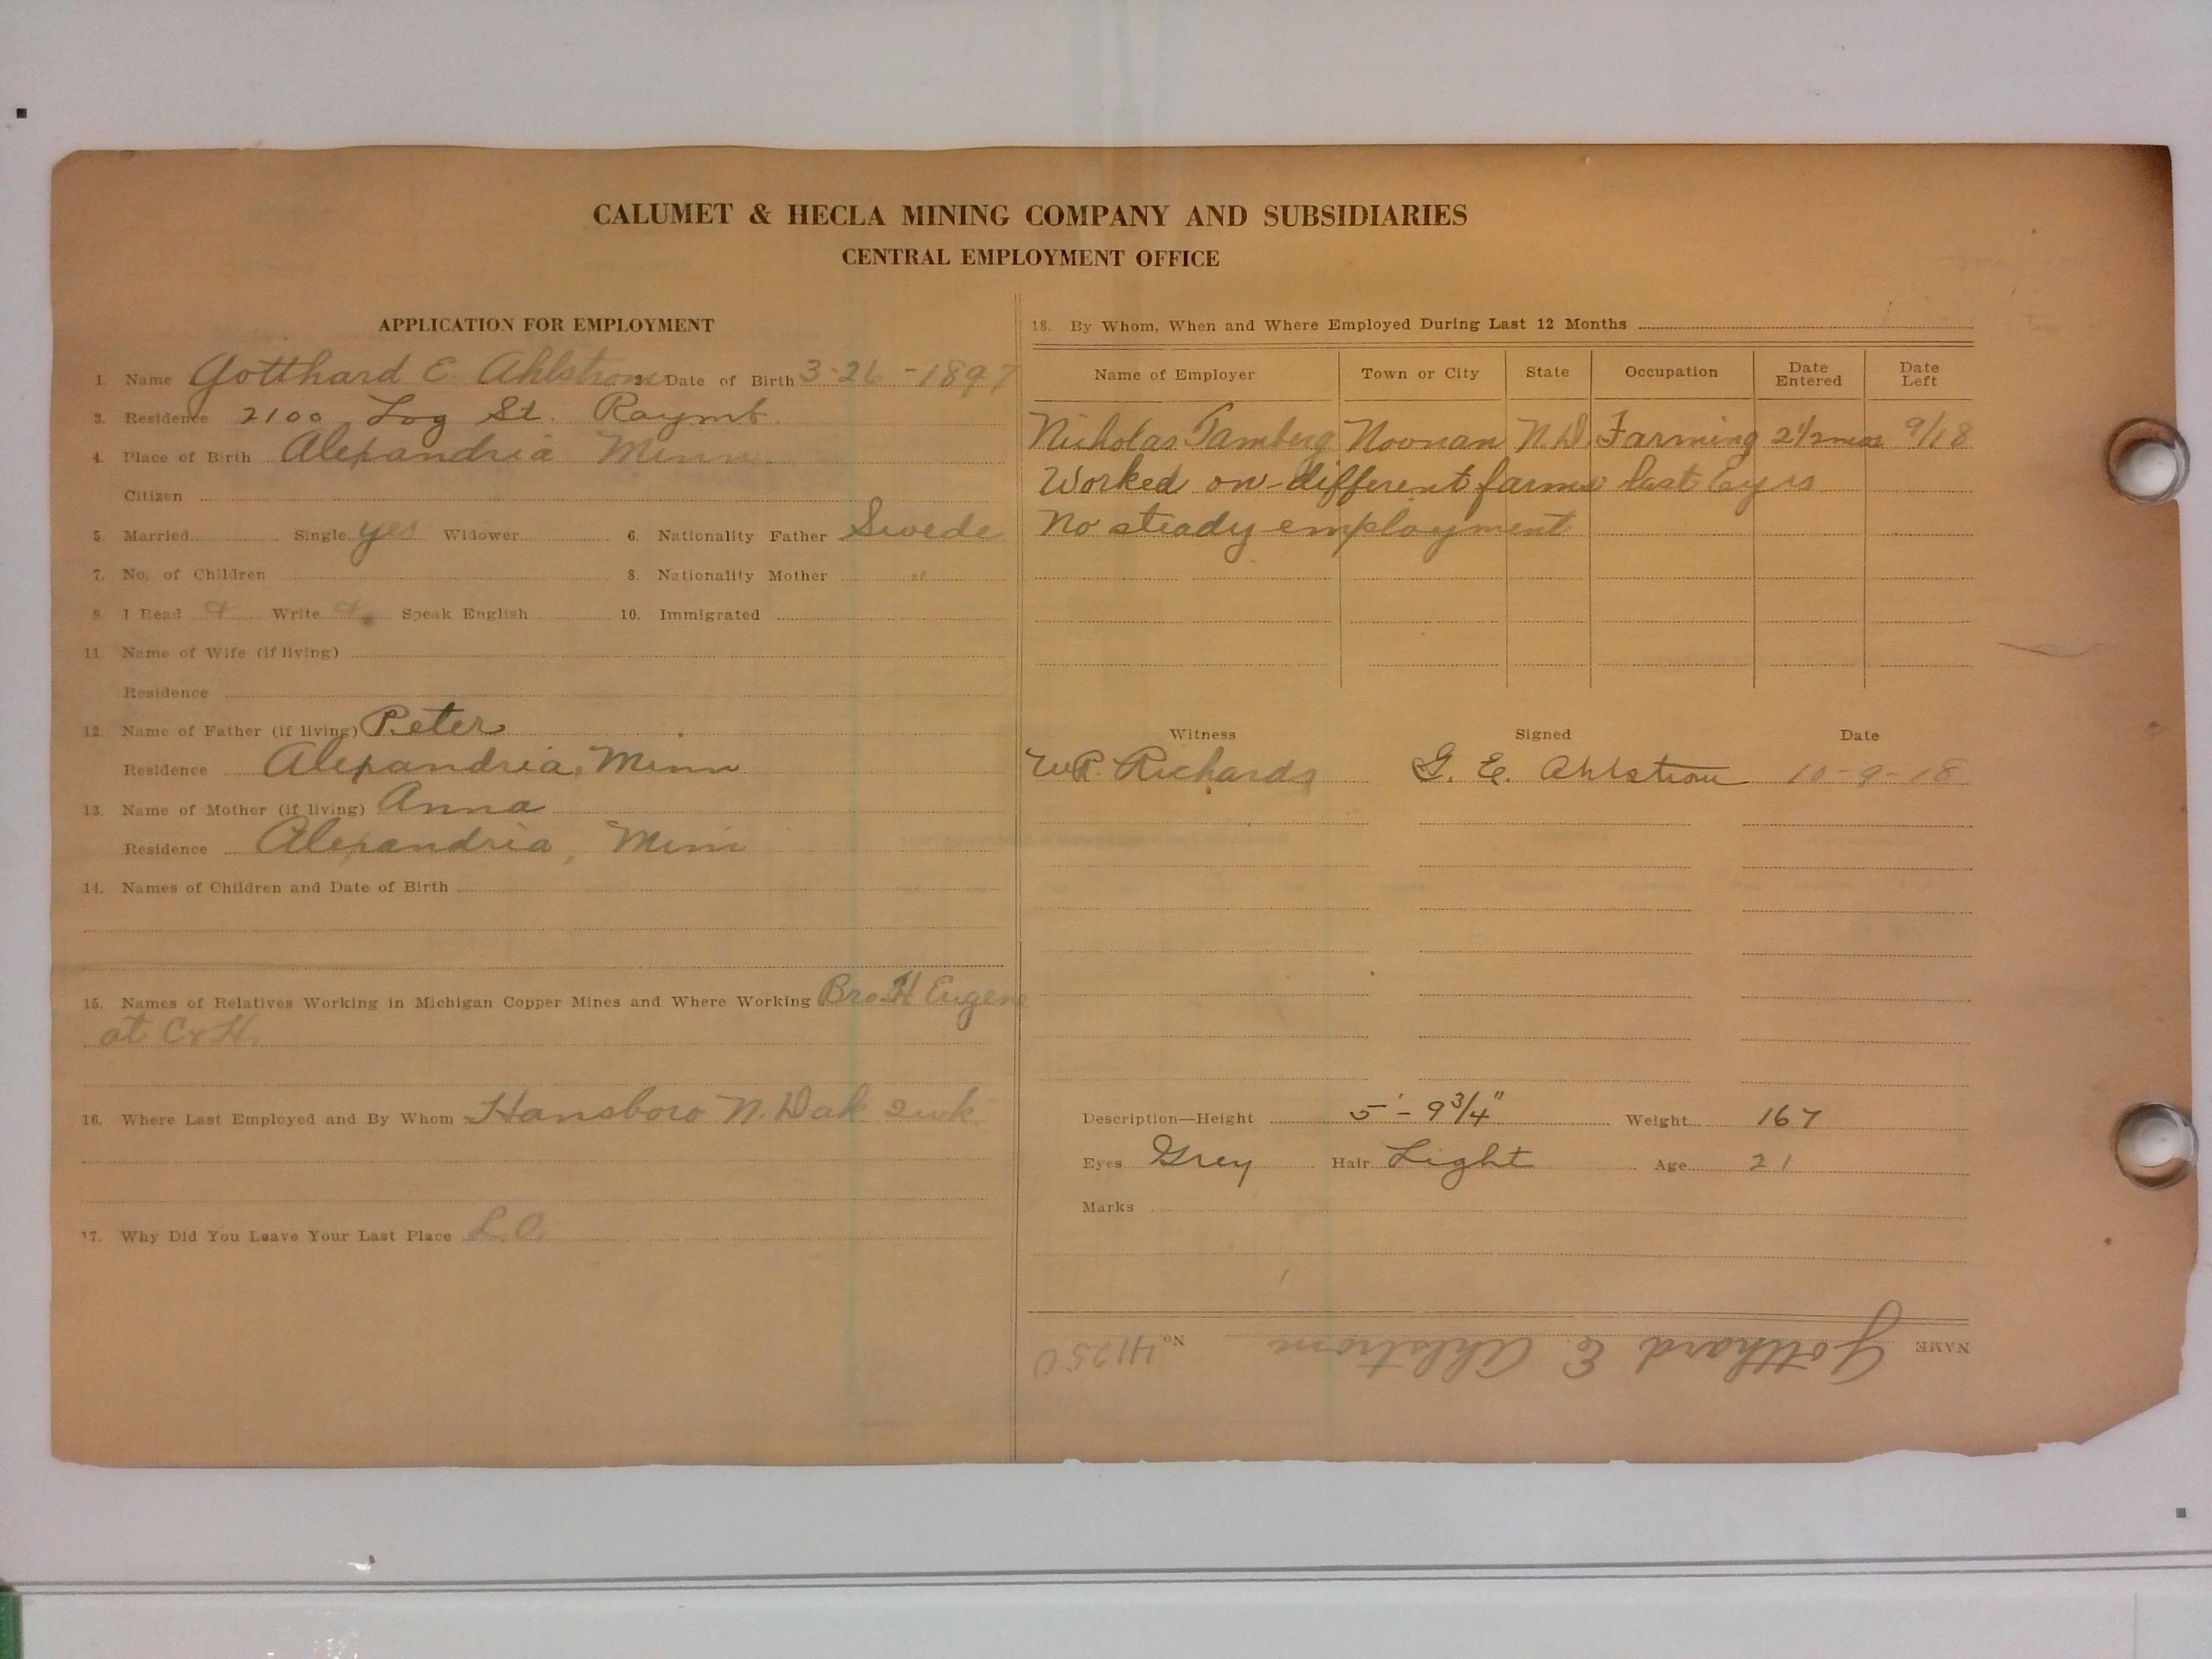 CALUMET & HECLA MINING COMPANY AND SUBSIDIARIES
CENTRAL EMPLOYMENT OFFICE
APPLICATION FOR EMPLOYMENT
1. Name Gotthard E. Ahlstrom 2. Date of Birth 3-26-1897
3. Residence 2100 Log St. Raymb.
4. Place of Birth Alexandria Minn.
Citizen
5 Married Single yes Widower 6. Nationality Father Swede
7. No. of Children 8. Nationality Mother "
9. I Read & Write & Speak English 10. Immigrated
11. Name of Wife (if living)
Residence
12. Name of Father (if living) Peter
Residence Alexandria, Minn
13. Name of Mother (if living) Anna
Residence Alexandria, Minn
14. Names of Children and Date of Birth
15. Names of Relatives Working in Michigan Copper Mines and Where Working Bro. H Eugene
at C & H.
16. Where Last Employed and By Whom Hansboro N. Dak 2wk
17. Why Did You Leave Your Last Place L.O.
18. By Whom, When and Where Employed During Last 12 Months
Name of Employer Town or City State Occupation Date Entered Date Left
Nicholas Tamberg Noonan N.D. Farming 2½mos 9/18
Worked on different farms last 6 yrs
No steady employment
Witness Signed Date
W.R. Richards G. E. Ahlstrom 10-9-18
Description—Height 5'-9 3/4" Weight 167
Eyes Grey Hair Light Age 21
Marks
NAME Gotthard E Ahlstrom No. 41250